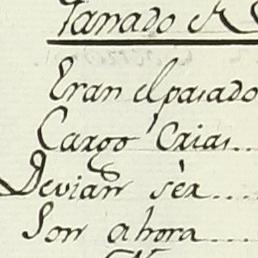 Eran el pasado
Cargo Crias..
Devian sér....
Son ahora....